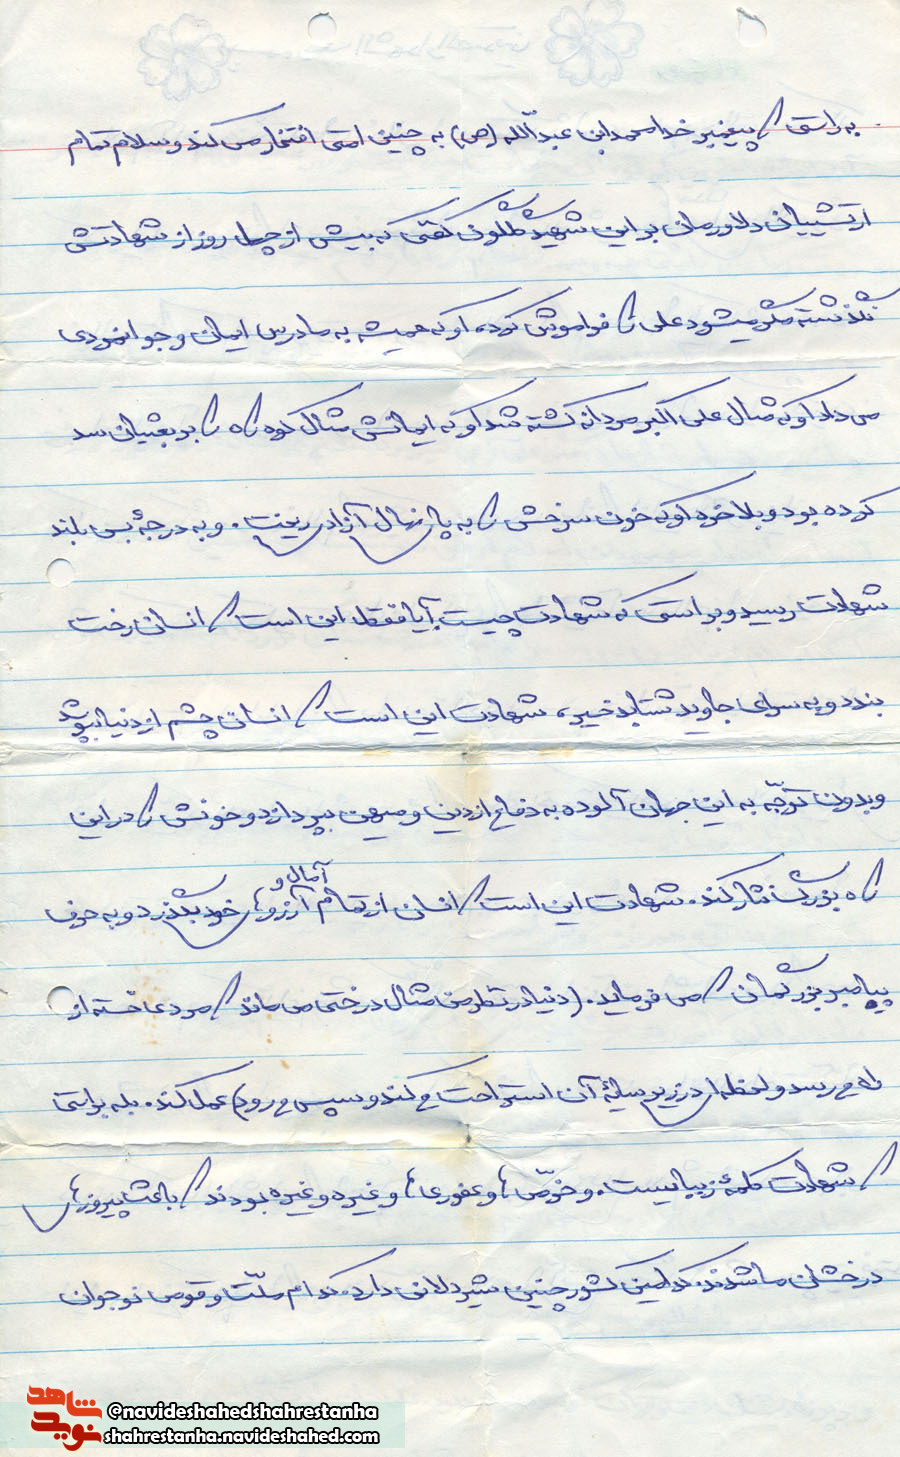 به راستی که پیغمبر خدا محمدابن عبدالله (ص) به چنین امتی افتخار می کند و سلام تمام
ارتشییانی دلاور مان بر این شهید گلگون کفنی که بیش از چهل روز از شهادتش
نگذشته مگر میشود علی را فراموش کرد، او که همیشه به ما درس ایمان و جوانمردی
می داد او که مثال علی اکبر مردانه کشته شد او که ایمانش مثال کوه راه را بر بعثیان سد
کرده بود و بلاخره او که خون سرخش را به پای نهال آزادی ریخت. و به درجۀ بس بلند
شهادت رسید و براستی که شهادت چیست آیا فقط این است که انسانی رخت
بندد و به سرای جاوید شتابد خیر، شهادت این است که انسان چشم از دنیا بپوشد
و بدون توجّه به این جهان آلوده به دفاع از دین و میهن بپردازد و خونش را در این
راه بزرگ نثار کند. شهادت این است که انسان از تمام آمال و آرزوهای خود بگذرد و به حرف
پیامبر بزرگمان که می فرماید. (دنیا در نظر من مثال درختی می ماند که مردی خسته از
راه می رسد و لحظه ای در زیر سایۀ آن استراحت می کند و سپس می رود) عمل کند. بله براستی
که شهادت کلمۀ زیباییست. و خرّمی ها و غفوری ها و غیره و غیره بودند که باعث پیروزیهای
درخشان ما شدند. کدامین کشور چنین شیردلانی دارد. کدام ملّت و قومی نوجوان
شاهد
نوید
@navideshahedshahrestanha
shahrestanha.navideshahed.com